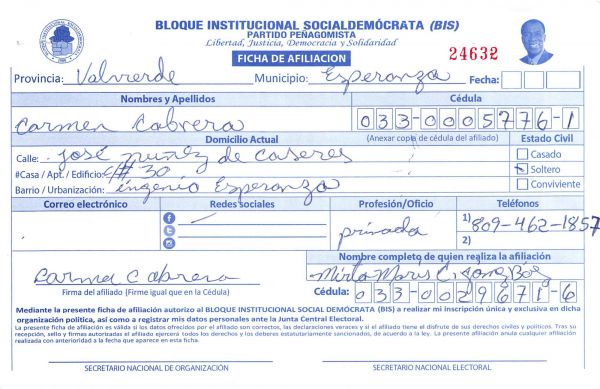 BLOQUE INSTITUCIONAL SOCIALDEMÓCRATA (BIS)
PARTIDO PEÑAGOMISTA
Libertad, Justicia, Democracia y Solidaridad
24632
FICHA DE AFILIACION
Provincia: Valvrerde Municipio: Esperanza Fecha:
Nombres y Apellidos Cédula
Carmen Cabrera 033-0005776-1
Domicilio Actual (Anexar copia de cédula del afiliado) Estado Civil
Calle: José nuñez de caseres Casado
#Casa / Apt. / Edificio: C/# 30 Soltero
Barrio / Urbanización: ingenio Esperanza Conviviente
Correo electrónico Redes sociales Profesión/Oficio Teléfonos
privada 1) 809-462-1857
2)
Nombre completo de quien realiza la afiliación
Carma Cabrera Mirta Marys C.
Firma del afiliado (Firme igual que en la Cédula) Cédula: 033-0029671-6
Mediante la presente ficha de afiliación autorizo al BLOQUE INSTITUCIONAL SOCIAL DEMÓCRATA (BIS) a realizar mi inscripción única y exclusiva en dicha
organización política, así como a registrar mis datos personales ante la Junta Central Electoral.
La presente ficha de afiliación es válida si los datos ofrecidos por el afiliado son correctos, las declaraciones veraces y si el afiliado tiene el disfrute de sus derechos civiles y políticos. Tras su
recepción, sello y firmas autorizadas el afiliado ejercerá todos los derechos y los deberes estatutariamente sancionados, de acuerdo a la ley. La presente afiliación anula cualquier afiliación
realizada con anterioridad a la fecha que aparece en esta ficha.
SECRETARIO NACIONAL DE ORGANIZACIÓN SECRETARIO NACIONAL ELECTORAL